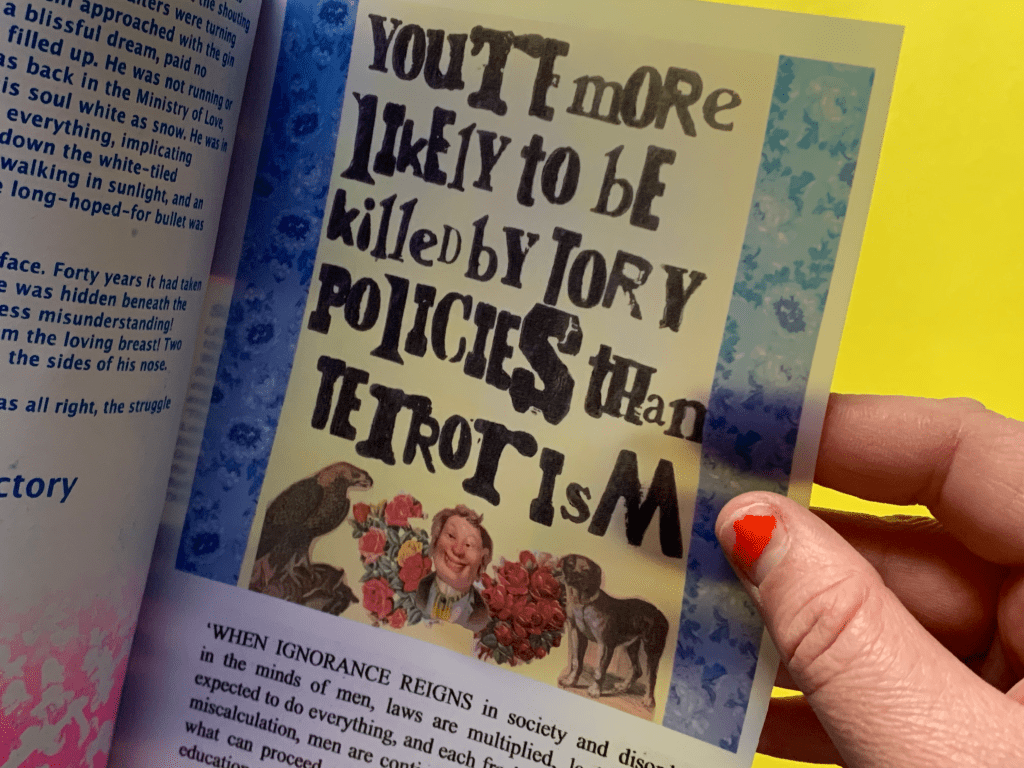 the shouting
ters were turning
approached with the gin
a blissful dream, paid no
filled up. He was not running or
as back in the Ministry of Love,
is soul white as snow. He was in
everything, implicating
down the white-tiled
walking in sunlight, and an
long-hoped-for bullet was
face. Forty years it had taken
e was hidden beneath the
ess misunderstanding!
m the loving breast! Two
the sides of his nose.
as all right, the struggle
ctory
YOURE mORe
lIkElY to bE
killeD bY TORY
POlICIES tHan
TERRorIsM
'WHEN IGNORANCE REIGNS in society and disord
in the minds of men, laws are multiplied,
expected to do everything, and each fr
miscalculation, men are conti
what can proceed
education